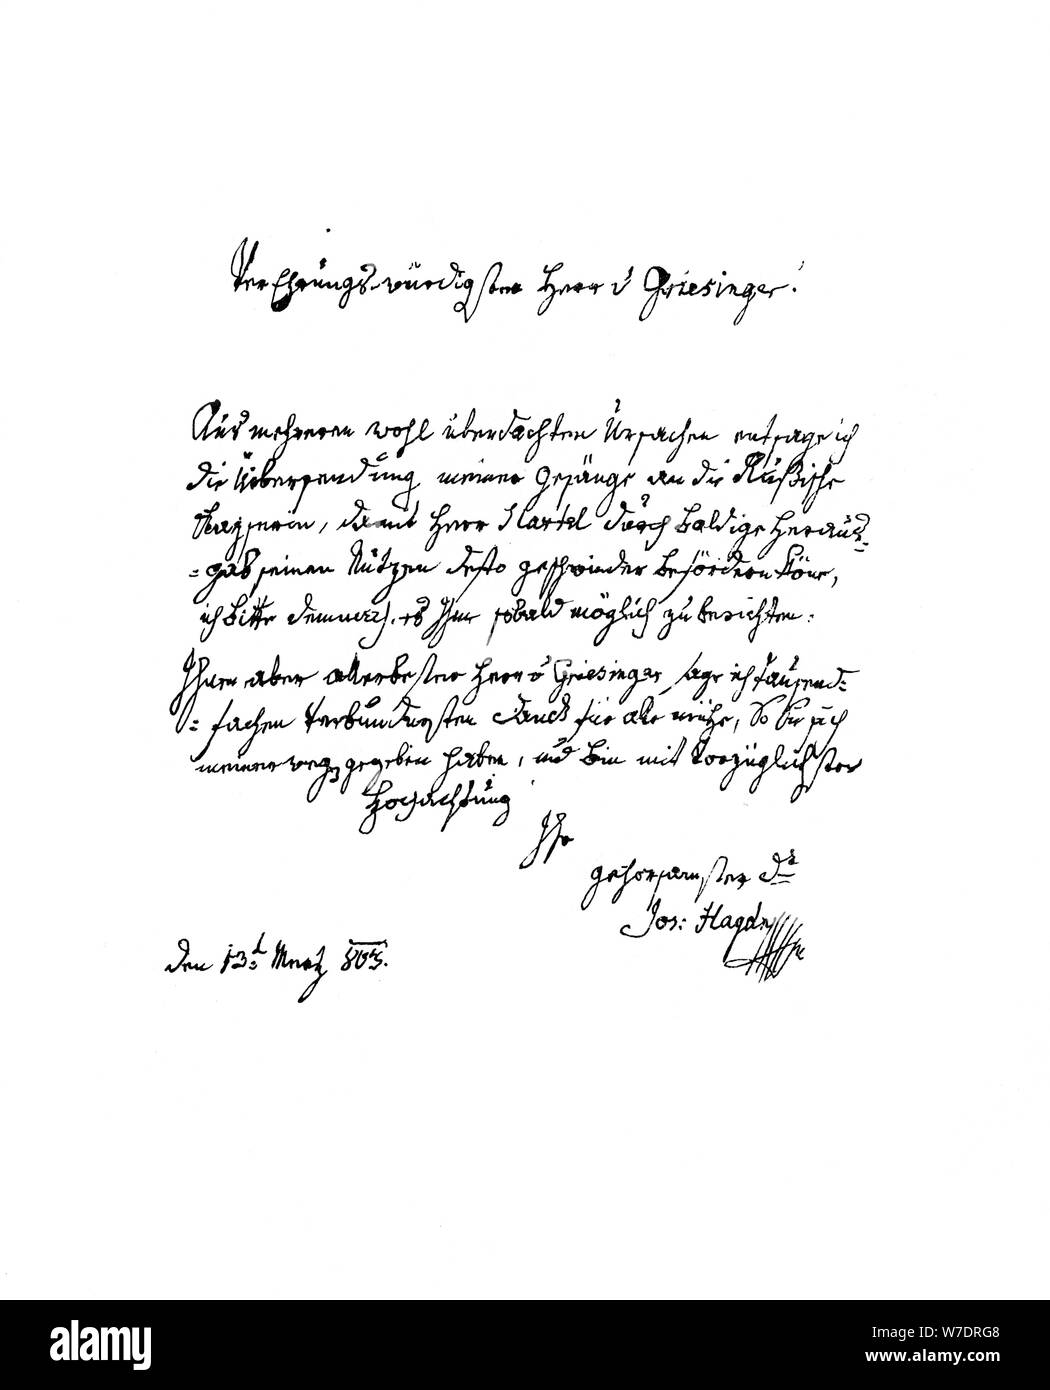 Verehrungs-würdigster Herr v Griesinger!
Aus mehreren wohl überdachten Ursachen entsage ich
die Übersendung meiner Gesänge an die Rußische
Kayserin, damit Herr Härtel durch baldige Heraus=
=gab seinen Nutzen desto geschwinder befördern köne,
ich bitte demnach, es Ihm sobald möglich zu berichten:
Ihnen aber allerbester Herr v Griesinger sage ich tausend=
=fachen verbundensten Danck für alle mühe, so Sie sich
meinetweg gegeben haben, und bin mit vorzüglichster
Hochachtung
Ihr
gehorsamster Dr
Jos: Haydn
den 13t Mertz 803.
alamy
alamy
W7DRG8
www.alamy.com